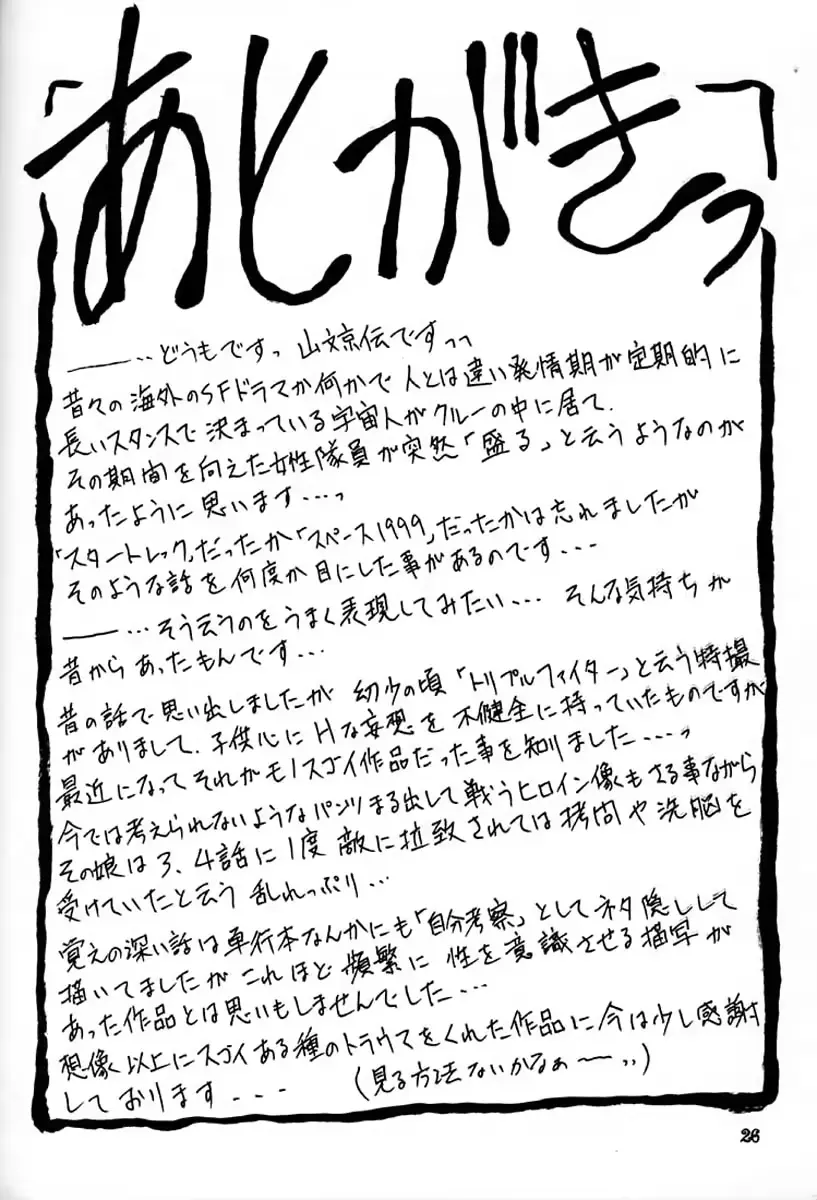 あとがきっ
――‥どうもですっ 山文京伝ですっっ
昔々の海外のSFドラマか何かで人とは違い発情期が定期的に
長いスタンスで決まっている宇宙人がクルーの中に居て.
その期間を向えた女性隊員が突然「盛る」と云うようなのが
あったように思います‥‥っ
「スタートレック」だったか「スペース1999」だったかは忘れましたが
そのような話を何度か目にした事があるのです‥‥
――‥‥そう云うのをうまく表現してみたい‥‥ そんな気持ちが
昔からあったもんです‥‥
昔の話で思い出しましたが 幼少の頃「トリプルファイター」と云う特撮
がありまして. 子供心にHな妄想を不健全に持っていたものですが
最近になってそれがモノスゴイ作品だった事を知りました‥‥っ
今では考えられないようなパンツまる出しで戦うヒロイン像もさる事ながら
その娘は3、4話に1度敵に拉致されては拷問や洗脳を
受けていたと云う 乱れっぷり‥‥
覚えの深い話は単行本なんかにも「自分考察」としてネタ隠しして
描いてましたがこれほど頻繁に性を意識させる描写が
あった作品とは思いもしませんでした‥‥
想像以上にスゴイある種のトラウマをくれた作品に今は少し感謝
しております‥‥ (見る方法ないかなぁ〜‥)
26